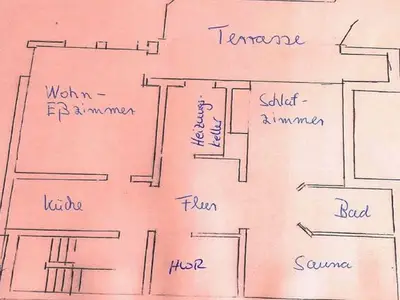 Terrasse
Wohn-
Eßzimmer
Heizungs-
keller
Schlaf-
zimmer
Küche
Flur
Bad
HWR
Sauna